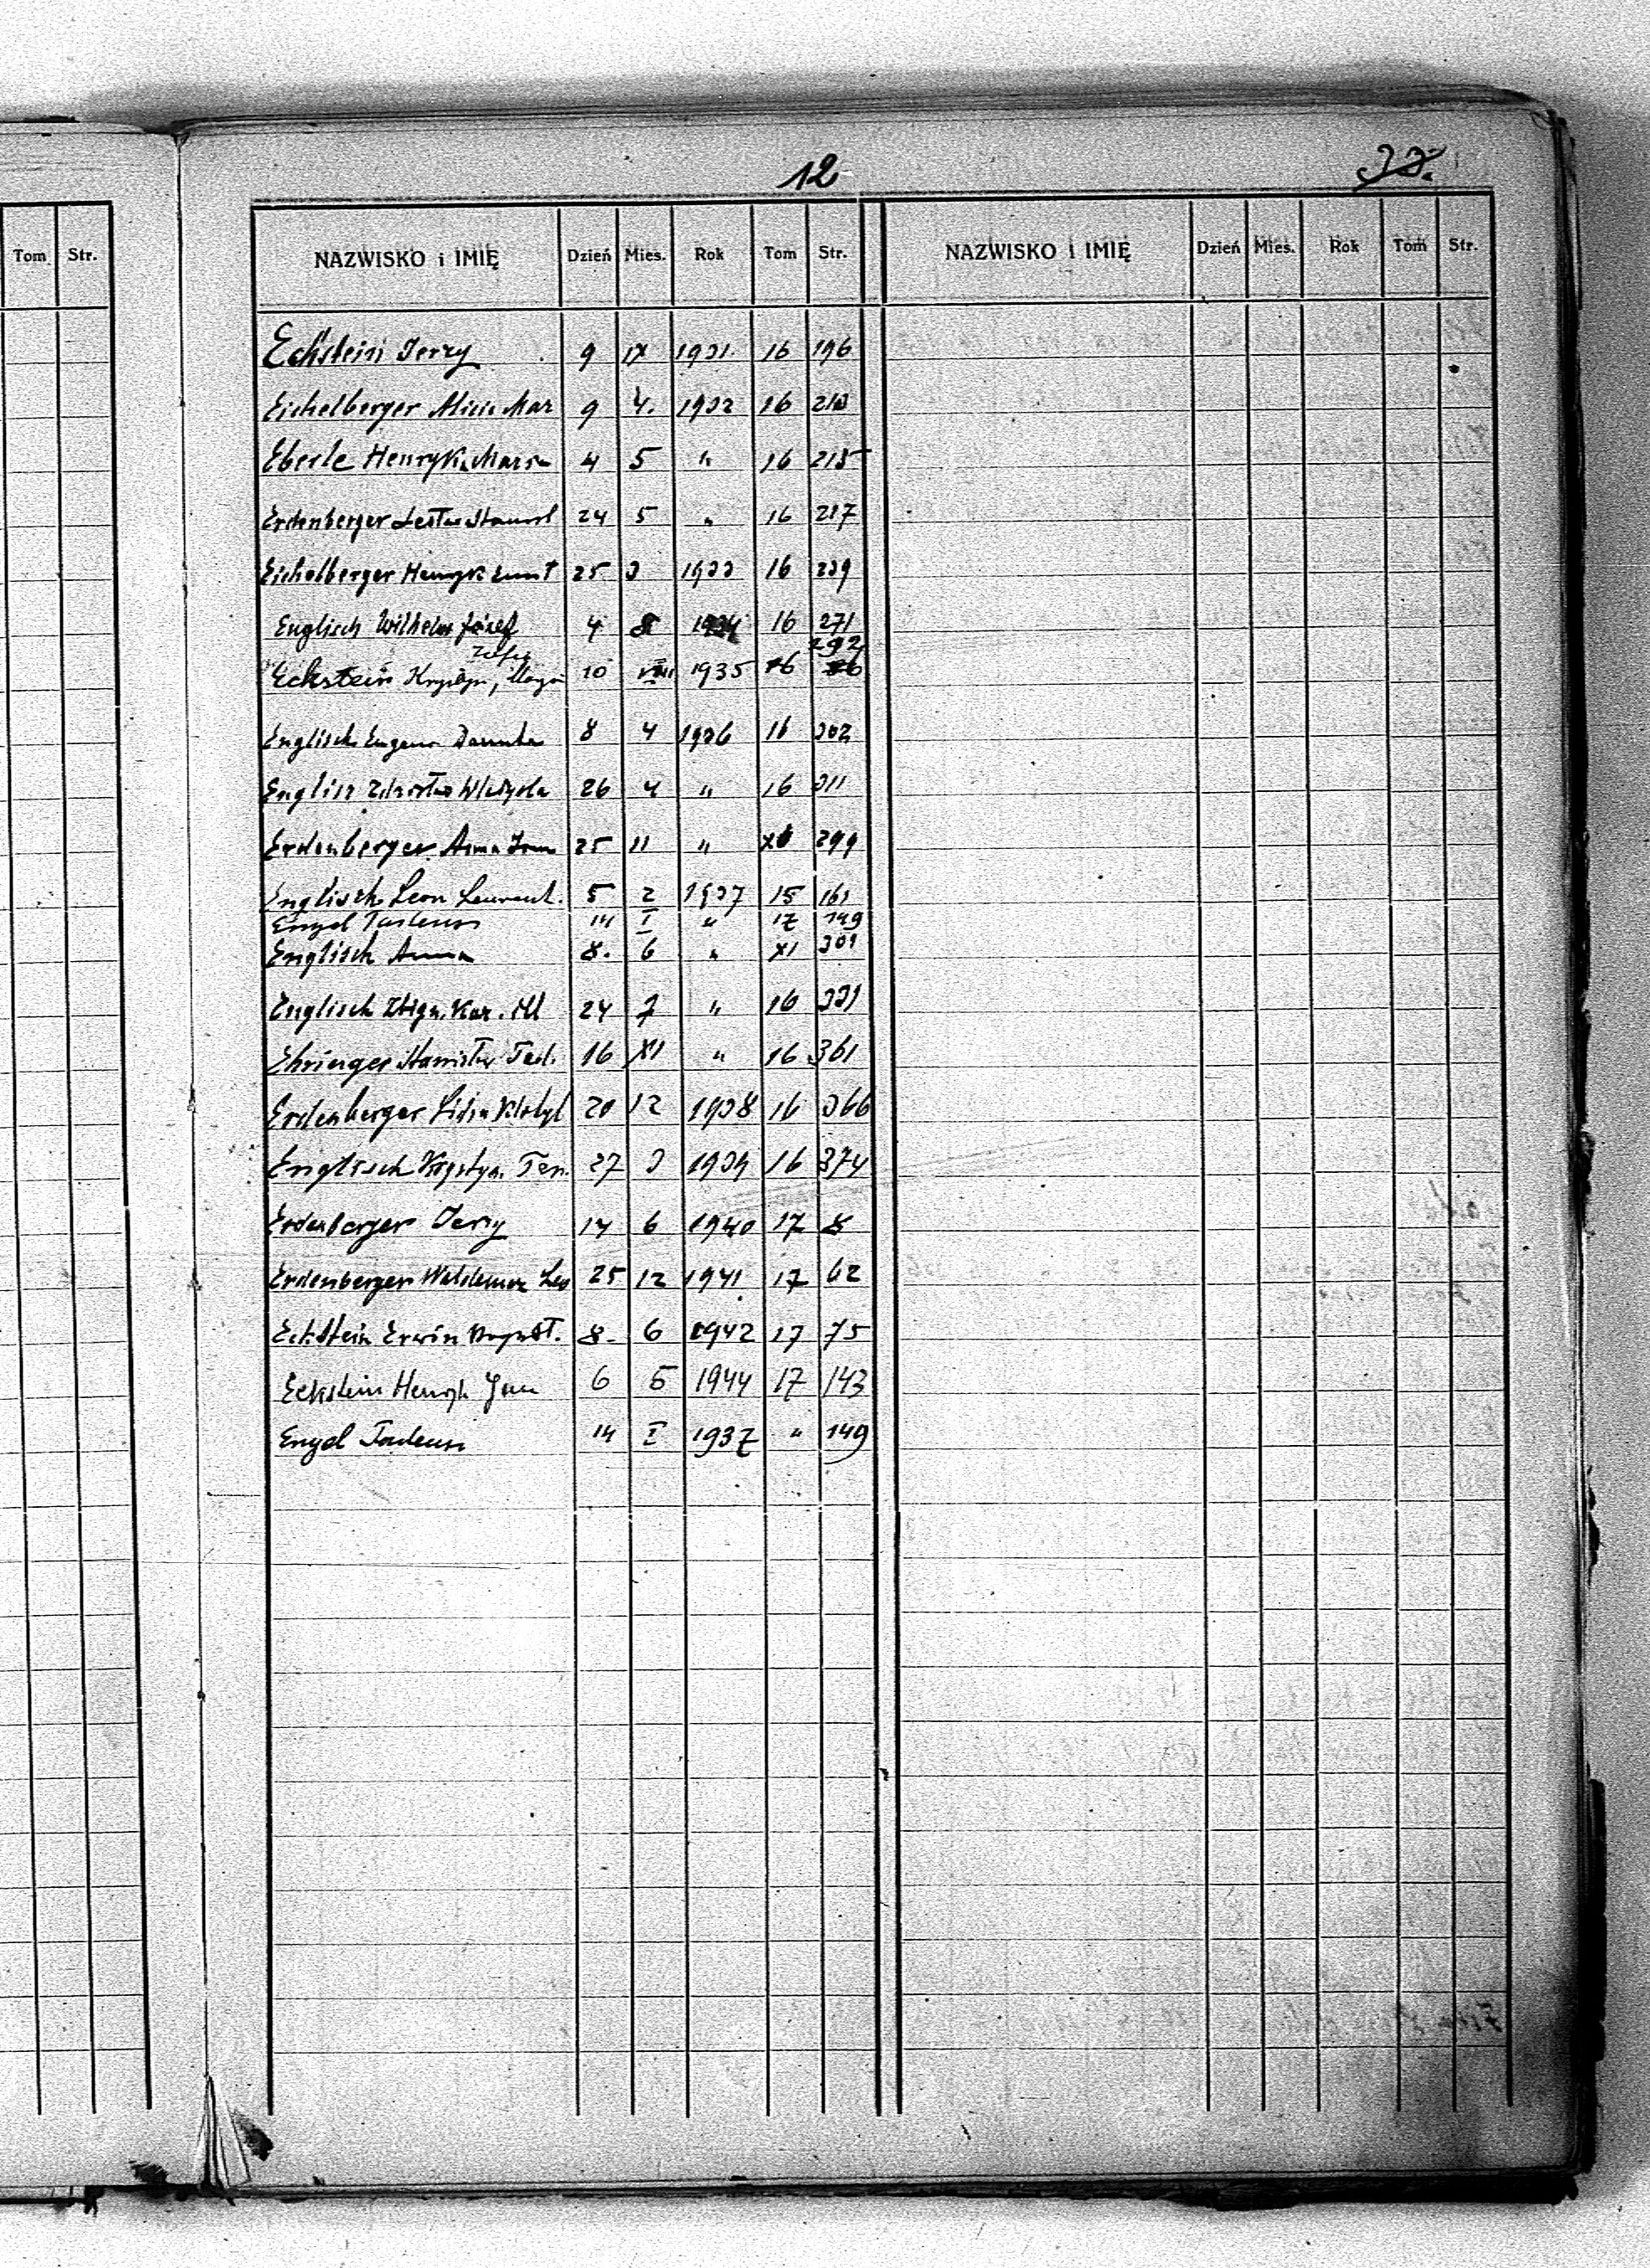 12
Tom Str.
NAZWISKO i IMIĘ Dzień Mies. Rok Tom Str. NAZWISKO i IMIĘ Dzień Mies. Rok Tom Str.
Eckstein Jerzy 9 IX 1931 16 196
Eichelberger Alicia Mar 9 4. 1932 16
Eberle Henryk 4 5 " 16 215
Erdenberger 24 5 " 16 217
Eichelberger Henryk 25 3 1933 16 239
Englisch Wilhelm Józef 4 8 1934 16 271
292
Eckstein 10 VIII 1935 16
Englisch Eugen Danuta 8 4 1936 16 302
Englisz Zdzisław Władysła 26 4 " 16 311
Erdenberger Anna 25 11 " 299
Englisch Leon 5 2 1937 15 161
Engel Tadeusz 14 I " 17 149
Englisch Anna 8. 6 " XI 301
Englisch Zbign. Kaz. 24 7 " 16 331
Ehringer Stanisław Tad. 16 XI " 16 361
Erdenberger Lidia 20 12 1938 16 366
Englisch Krystyn. Ter. 27 3 1939 16 374
Erdenberger Jerzy 14 6 1940 17 8
Erdenberger Waldemar 25 12 1941 17 62
Eckstein Erwin 8 6 1942 17 75
Eckstein Henryk Jan 6 5 1944 17 143
Engel Tadeusz 14 I 1937 " 149